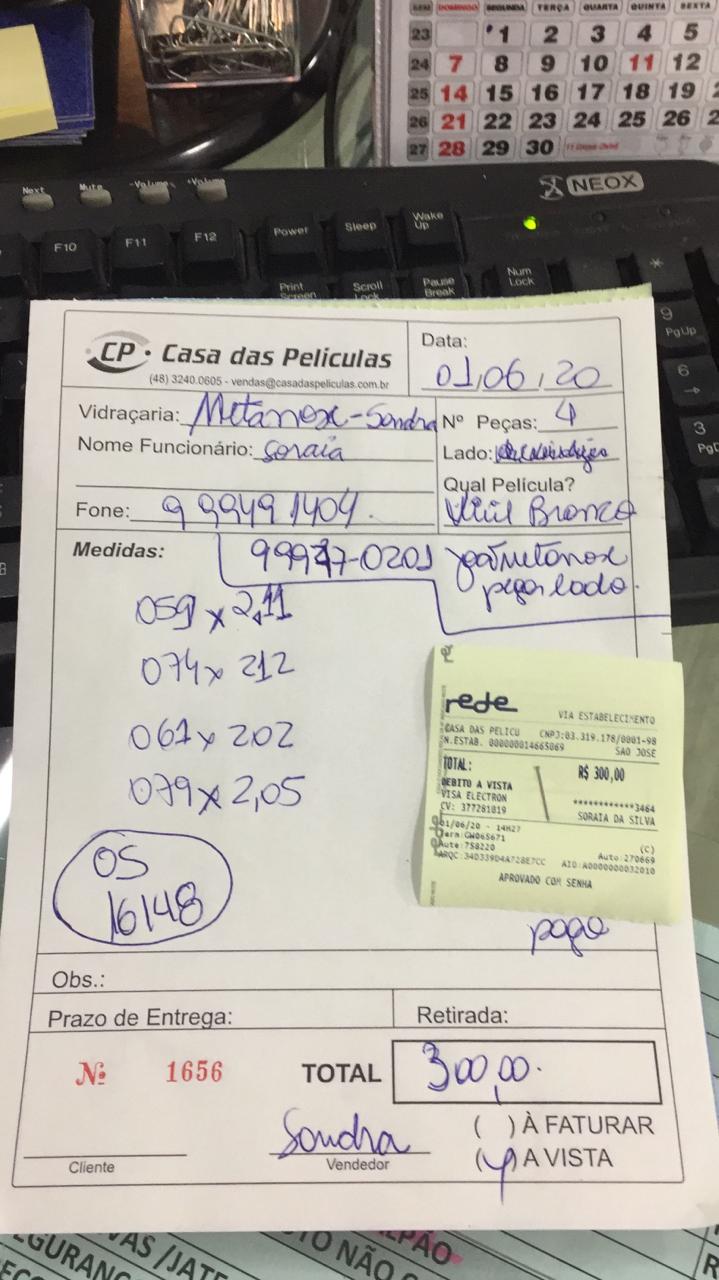 SEM DOMINGO SEGUNDA TERÇA QUARTA QUINTA SEXTA
23 1 2 3 4 5
24 7 8 9 10 11 12
25 14 15 16 17 18 19
26 21 22 23 24 25 26
27 28 29 30
Next Mute -Volume +Volume
NEOX
F10 F11 F12 Power Sleep Wake Up
Print Screen Scroll Lock Pause Break Num Lock
*
9 PgUp
6
3
CP · Casa das Peliculas
(48) 3240.0605 - vendas@casadaspeliculas.com.br
Data:
01,06,20
Vidraçaria: Metanox-Sandra
Nº Peças: 4
Nome Funcionário: Soraia
Lado:
Qual Película?
Fone: 9 99491404.
Branco
Medidas:
059 x 2,11
074x 212
061x 202
079x 2,05
OS
16148
rede
VIA ESTABELECIMENTO
CASA DAS PELICU CNPJ:03.319.178/0001-98
N.ESTAB. 000000014665069 SAO JOSE
TOTAL: R$ 300,00
DEBITO A VISTA
VISA ELECTRON ************3464
CV: 377281819 SORAIA DA SILVA
01/06/20 - 14H27
(C)
Term:GW065671
Aute:758220 Auto:270669
ARQC:34D339D4A728E7CC AID:A0000000032010
APROVADO COM SENHA
pago
Obs.:
Prazo de Entrega: Retirada:
Nº 1656 TOTAL 300,00.
Sandra
( ) À FATURAR
Cliente Vendedor
( ) A VISTA